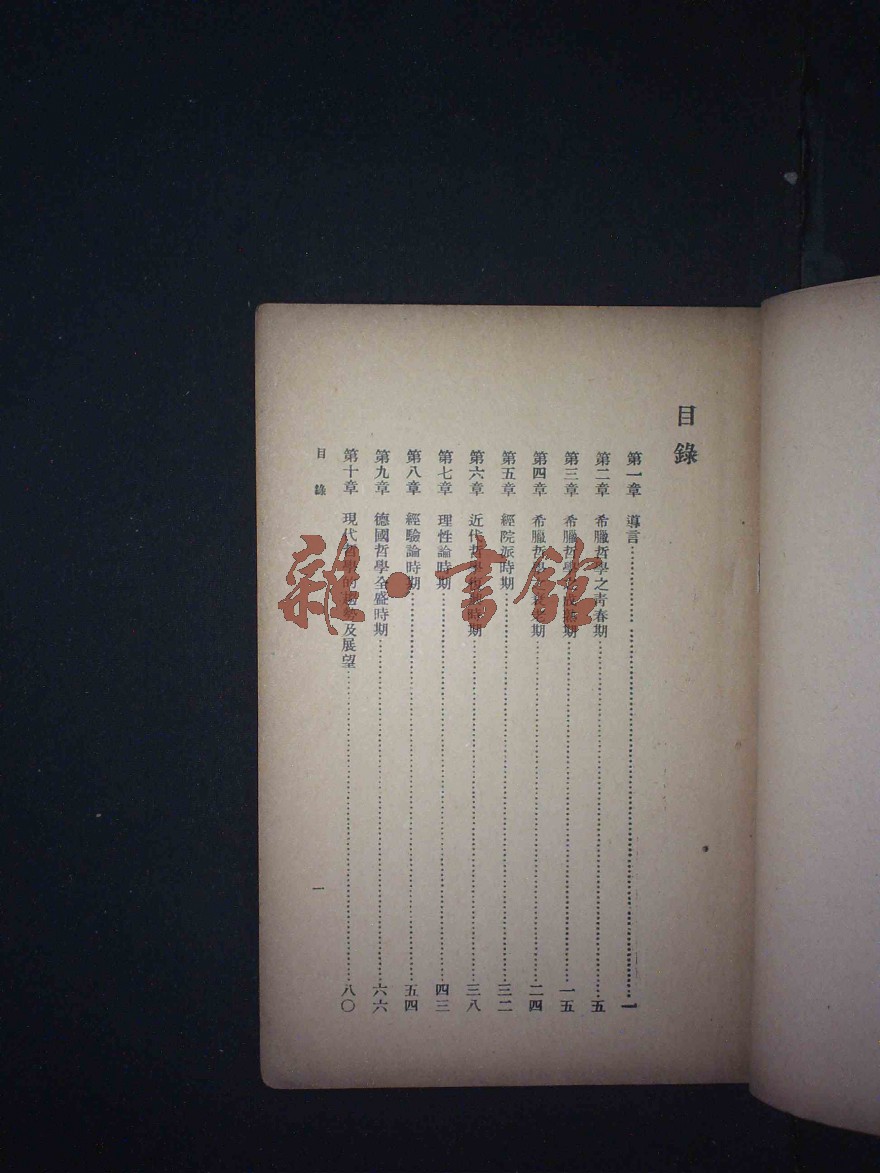 目錄
第一章 導言……一
第二章 希臘哲學之靑春期……五
第三章 希臘哲學之成熟期……一五
第四章 希臘哲學之衰老期……二四
第五章 經院派時期……三二
第六章 近代哲學復興時期……三八
第七章 理性論時期……四三
第八章 經驗論時期……五四
第九章 德國哲學全盛時期……六六
第十章 現代哲學的趨勢及展望……八〇
目錄 一
雜·書館